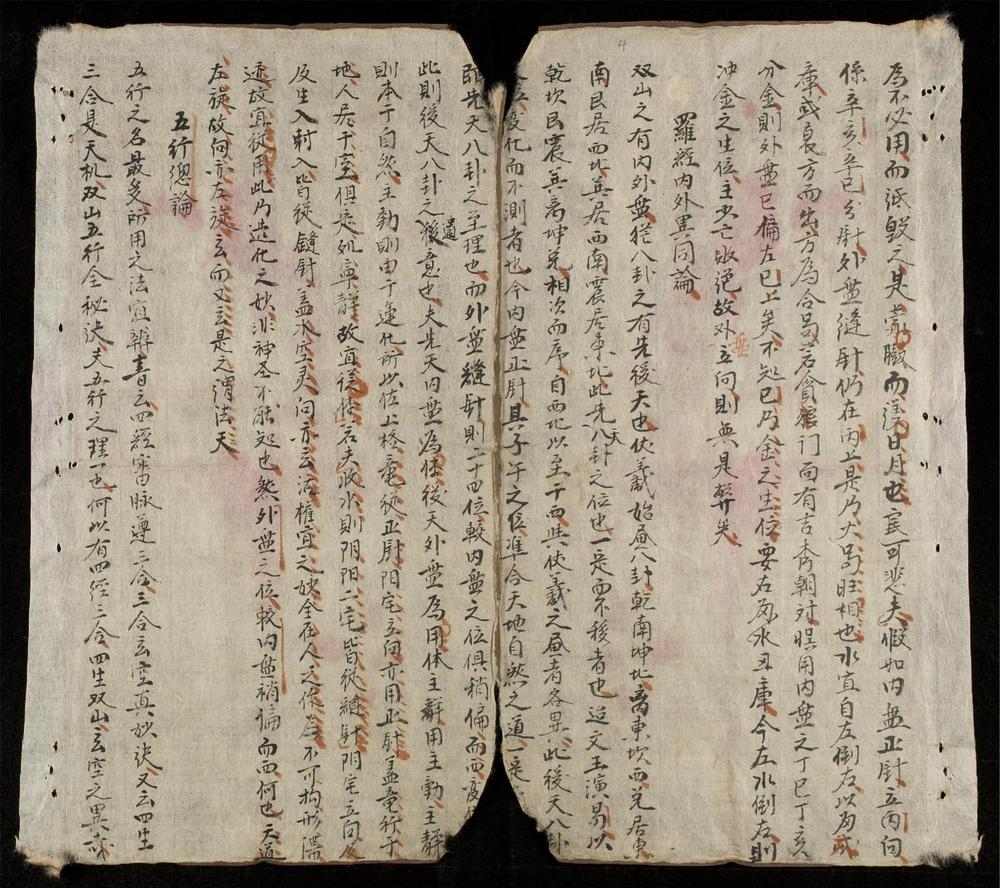 為不必用而詆毀之是蒙瞶而議日月也寔可悲夫假如內盤正針立丙向
係辛亥辛巳分針外盤縫針仍在丙上是乃大局旺相也水宜自左倒右以為或
庫或良方而出方為合局若貪龍门面有吉秀朝对悮用内盤之丁巳丁亥
分金則外盤已偏左巳上矣不知巳乃金之生位要右為水丑庫今左水倒右則
冲金之生位主少亡敗绝故外盤立向則無是弊矣
羅經内外異同論
双山之有内外盤猶八卦之有先後天也伏羲始画八卦乾南坤北离東坎西兑居東
南艮居西北巽居西南震居東北此先天八卦之位也一定而不移者也迨文王演易以
乾坎艮震巽离坤兑相次而序自西北以至于西與伏羲之画者各異此後天八卦
变化而不測者也今内盤正針具子午之位準合天地自然之道一定
先天八卦之至理也而外盤縫針則二十四位較内盤之位俱稍偏而西变
此則後天八卦之遺意也夫先天内盤為体後天外盤為用体主靜用主動主靜
則本于自然主動則由于運化所以佐上格竜從正針阳宅立向亦用正針盖竜行于
地人居于室俱是列寧靜故宜從体若夫收水則阴阳二宅皆從縫針阴宅立向及
及生入尅入皆從縫針盖水空灵向亦云活權宜之妙全在人之作為不可拘形滞
迹故宜從用此乃造化之妙非神圣不能知也然外盤之位較内盤稍偏而西何也天道
左旋故向亦左旋云而又云是之謂法天
五行總論
五行之名最多所用之法宜辨書云四經審脉遵三合三合云空真妙诀又云四生
三合是天机双山五行全秘诀夫五行之理一也何以有四经三合四生双山玄空之異哉